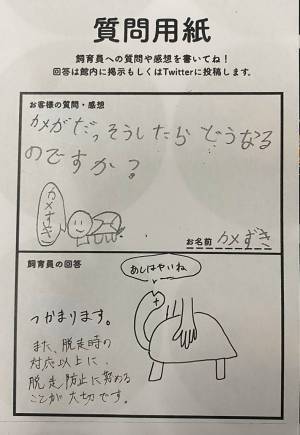 質問用紙
飼育員への質問や感想を書いてね！
回答は館内に掲示もしくはTwitterに投稿します。
お客様の質問・感想
カメがだっそうしたら どうなる
のですか？
カメすき
お名前 カメずき
飼育員の回答
あしはやいね
つかまります。
また、脱走時の
対応以上に、
脱走防止に努める
ことが大切です。